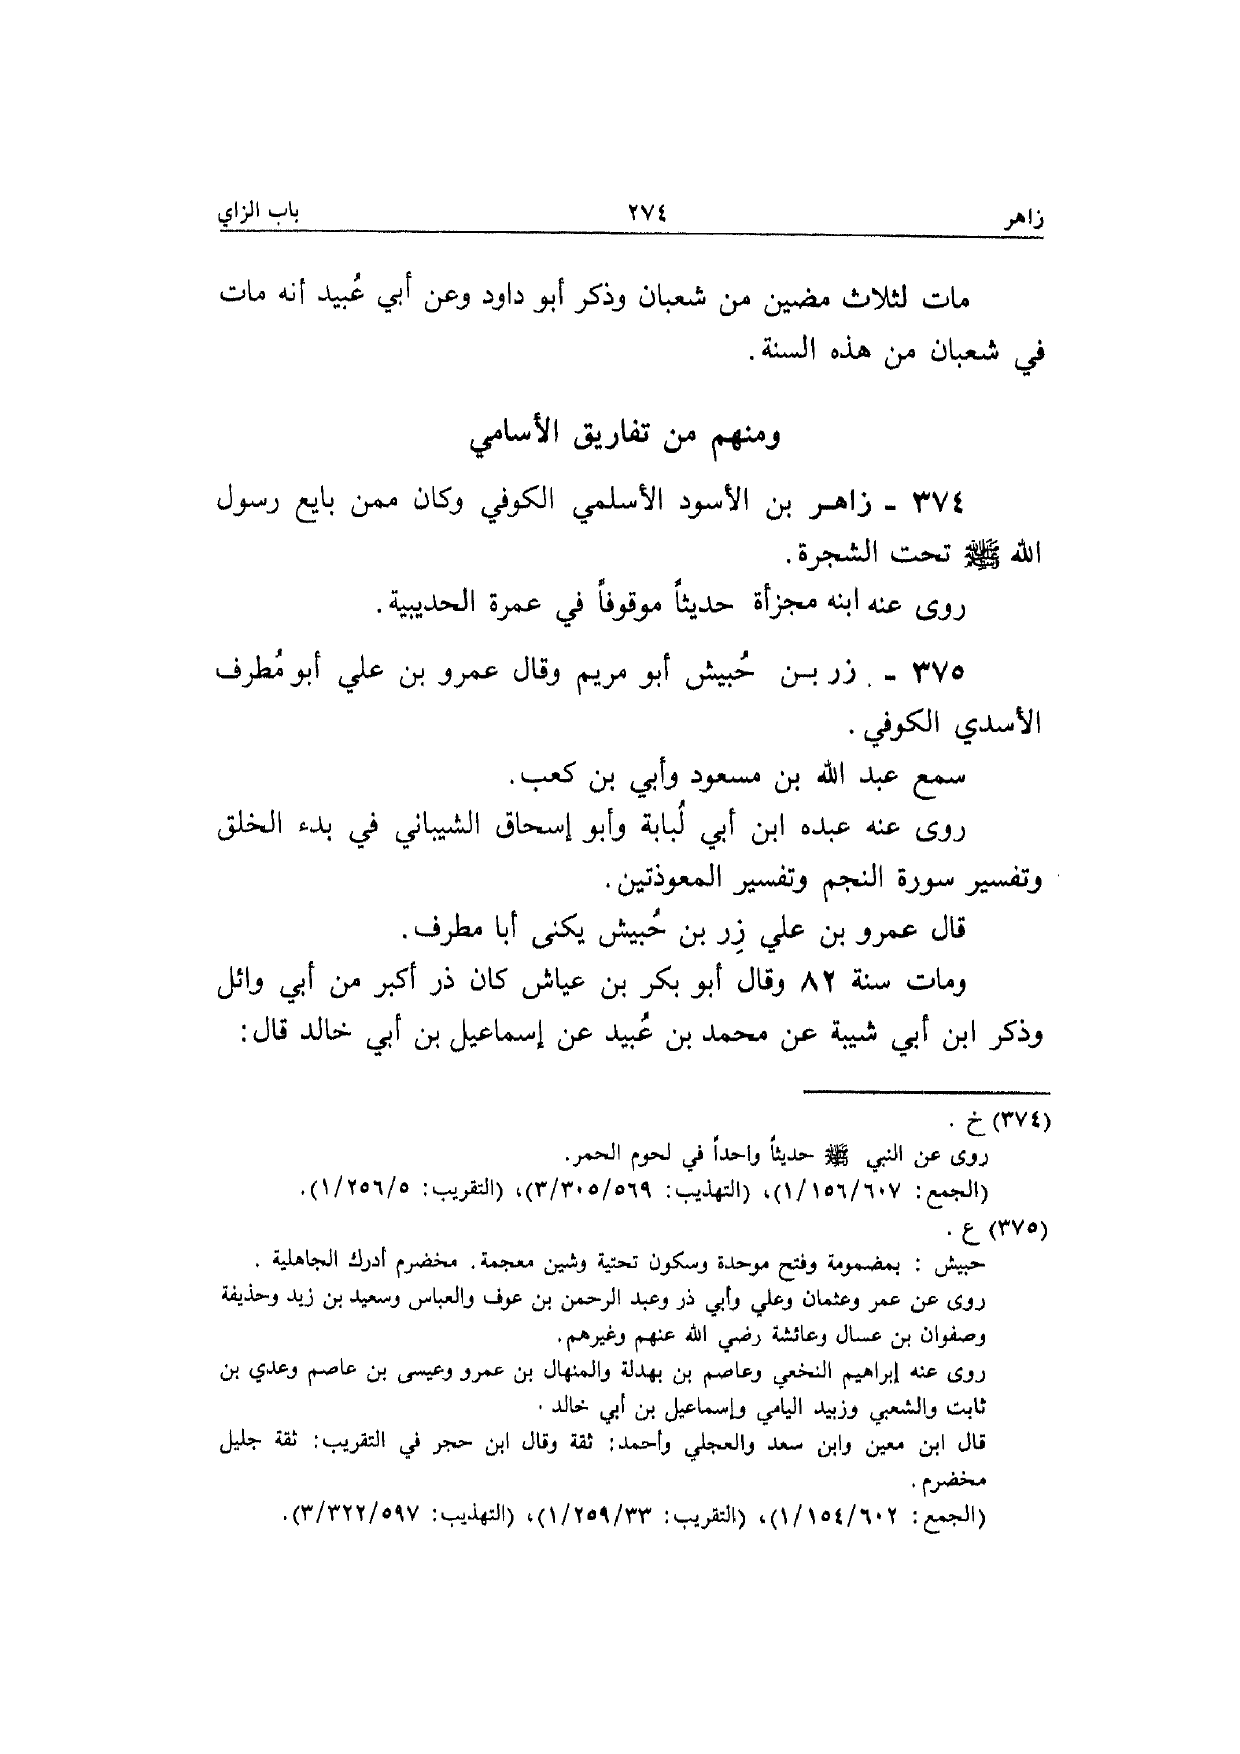 زاهر ٢٧٤ باب الزاي
مات لثلاث مضين من شعبان وذكر أبو داود وعن أبي عُبيد أنه مات
في شعبان من هذه السنة.
ومنهم من تفاريق الأسامي
٣٧٤ - زاهر بن الأسود الأسلمي الكوفي وكان ممن بايع رسول
الله ﷺ تحت الشجرة.
روى عنه ابنه مجزأة حديثاً موقوفاً في عمرة الحديبية.
٣٧٥ - زر بن حُبيش أبو مريم وقال عمرو بن علي أبو مُطرف
الأسدي الكوفي.
سمع عبد الله بن مسعود وأبي بن كعب.
روى عنه عبده ابن أبي لُبابة وأبو إسحاق الشيباني في بدء الخلق
وتفسير سورة النجم وتفسير المعوذتين.
قال عمرو بن علي زِر بن حُبيش يكنى أبا مطرف.
ومات سنة ٨٢ وقال أبو بكر بن عياش كان ذر أكبر من أبي وائل
وذكر ابن أبي شيبة عن محمد بن عُبيد عن إسماعيل بن أبي خالد قال:
(٣٧٤) خ.
روى عن النبي ﷺ حديثاً واحداً في لحوم الحمر.
(الجمع: ١/١٥٦/٦٠٧)، (التهذيب: ٣/٣٠٥/٥٦٩)، (التقريب: ١/٢٥٦/٥).
(٣٧٥) ع.
حبيش : بمضمومة وفتح موحدة وسكون تحتية وشين معجمة. مخضرم أدرك الجاهلية.
روى عن عمر وعثمان وعلي وأبي ذر وعبد الرحمن بن عوف والعباس وسعيد بن زيد وحذيفة
وصفوان بن عسال وعائشة رضي الله عنهم وغيرهم.
روى عنه إبراهيم النخعي وعاصم بن بهدلة والمنهال بن عمرو وعيسى بن عاصم وعدي بن
ثابت والشعبي وزبيد اليامي وإسماعيل بن أبي خالد.
قال ابن معين وابن سعد والعجلي وأحمد: ثقة وقال ابن حجر في التقريب: ثقة جليل
مخضرم.
(الجمع: ١/١٥٤/٦٠٢)، (التقريب: ١/٢٥٩/٣٣)، (التهذيب: ٣/٣٢٢/٥٩٧).